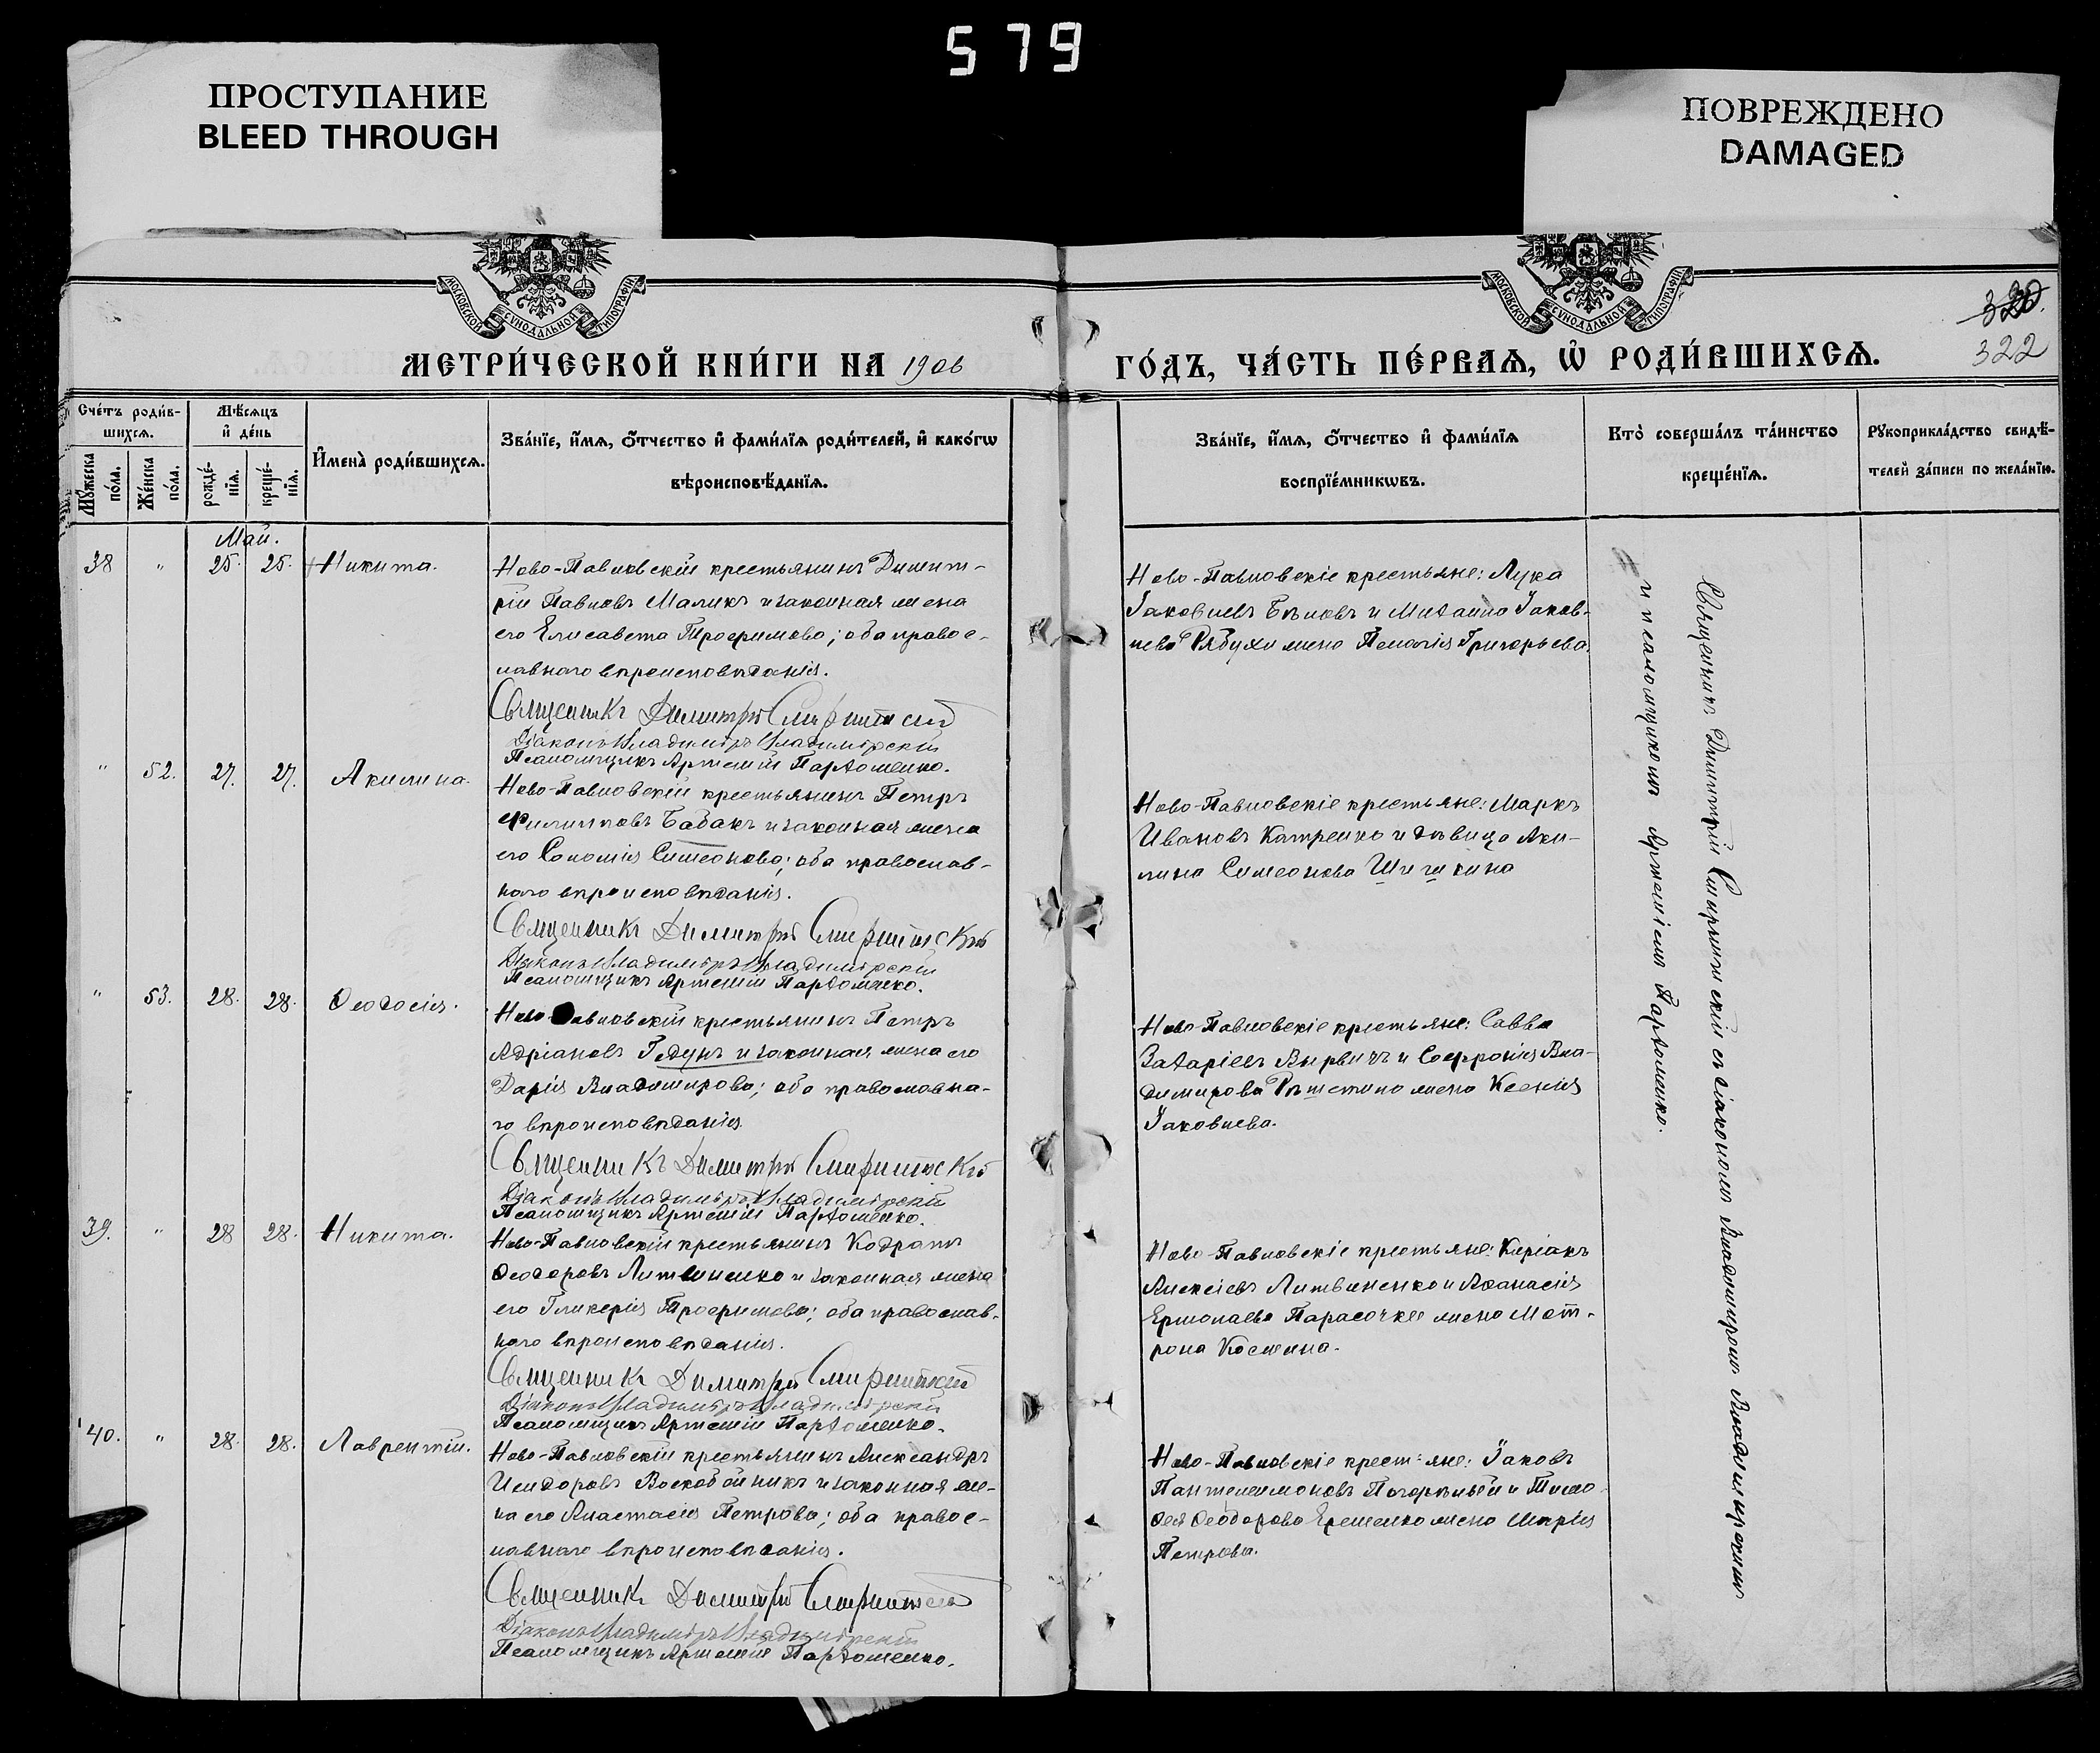 579
ПРОСТУПАНИЕ
BLEED THROUGH
ПОВРЕЖДЕНО
DAMAGED
МОСКОВСКОЙ СѴНОДАЛЬНОЙ ТИПОГРАФІИ
МОСКОВСКОЙ СѴНОДАЛЬНОЙ ТИПОГРАФІИ
320.
322
МЕТРИ́ЧЕСКОЙ КНИ́ГИ НА 1906
ГО́ДЪ, ЧА́СТЬ ПЕ́РВАѦ, Ѡ҆ РОДИ́ВШИХСѦ.
Сче́тъ роди́в-
шихсѧ.
Мꙋ́жеска
по́ла.
Же́нска
по́ла.
Мѣ́сѧцъ
и҆ де́нь
рожде́-
нїѧ.
креще́-
нїѧ.
И҆мена̀ роди́вшихсѧ.
Зва́нїе, и҆́мѧ, ѻ҆́тчество и҆ фами́лїѧ роди́телей, и҆ како́гѡ
вѣроисповѣ́данїѧ.
Зва́нїе, и҆́мѧ, ѻ҆́тчество и҆ фами́лїѧ
воспрїе́мникѡвъ.
Кто̀ соверша́лъ та́инство
креще́нїѧ.
Рꙋкоприкла́дство свидѣ́-
телей за́писи по жела́нїю.
Май.
38 " 25. 25. Никита.
Ново-Павловскій крестьянинъ Димит-
рій Павловъ Маликъ и законная жена
его Елисавета Трофимова; оба правос-
лавнаго вѣроисповѣданія.
Священникъ Димитрій
Діаконъ Владиміръ Владимірскій
Псаломщикъ Артемій Пархоменко.
Ново-Павловскіе крестьяне: Лука
Іаковлевъ Бѣловъ и Михаила Іаков-
лева Рябухи жена Пелагія Григорьева.
" 52. 27. 27. Акилина.
Ново-Павловскій крестьянинъ Петръ
Филипповъ Бабакъ и законная жена
его Соломія Симеонова; оба православ-
наго вѣроисповѣданія.
Священникъ Димитрій
Діаконъ Владиміръ Владимірскій
Псаломщикъ Артемій Пархоменко.
Ново-Павловскіе крестьяне: Маркъ
Ивановъ Катренко и дѣвица Аки-
лина Симеонова Шишкина
" 53. 28. 28. Ѳеодосія.
Ново-Павловскій крестьянинъ Петръ
Адріановъ Гедунъ и законная жена его
Дарія Владимирова; оба православна-
го вѣроисповѣданія
Священникъ Димитрій
Діаконъ Владиміръ Владимірскій
Псаломщикъ Артемій Пархоменко.
Ново-Павловскіе крестьяне: Савва
Захаріевъ Вырвичъ и Софронія Вла-
димирова жена Ксенія
Іаковлева.
39. " 28 28. Никита.
Ново-Павловскій крестьянинъ Кодратъ
Ѳеодоровъ Литвиненко и законная жена
его Гликерія Трофимова; оба православ-
наго вѣроисповѣданія.
Священникъ Димитрій
Діаконъ Владиміръ Владимірскій
Псаломщикъ Артемій Пархоменко.
Ново-Павловскіе крестьяне: Киріакъ
Алексіевъ Литвиненко и Аѳанасія
Ермолаева Парасочки жена Мат-
рона Космина.
40. " 28. 28. Лаврентій.
Ново-Павловскій крестьянинъ Александръ
Исидоровъ Воскобойникъ и законная же-
на его Анастасія Петрова; оба правос-
лавнаго вѣроисповѣданія.
Священникъ Димитрій
Діаконъ Владиміръ Владимірскій
Псаломщикъ Артемій Пархоменко.
Ново-Павловскіе крестьяне: Іаковъ
Пантелеимоновъ Погорѣлый и Тимо-
ѳея Ѳеодорова Еременко жена Марія
Петрова.
Священникъ Димитрій съ діакономъ Владиміромъ Владимірскимъ
и псаломщикомъ Артеміемъ Пархоменко.